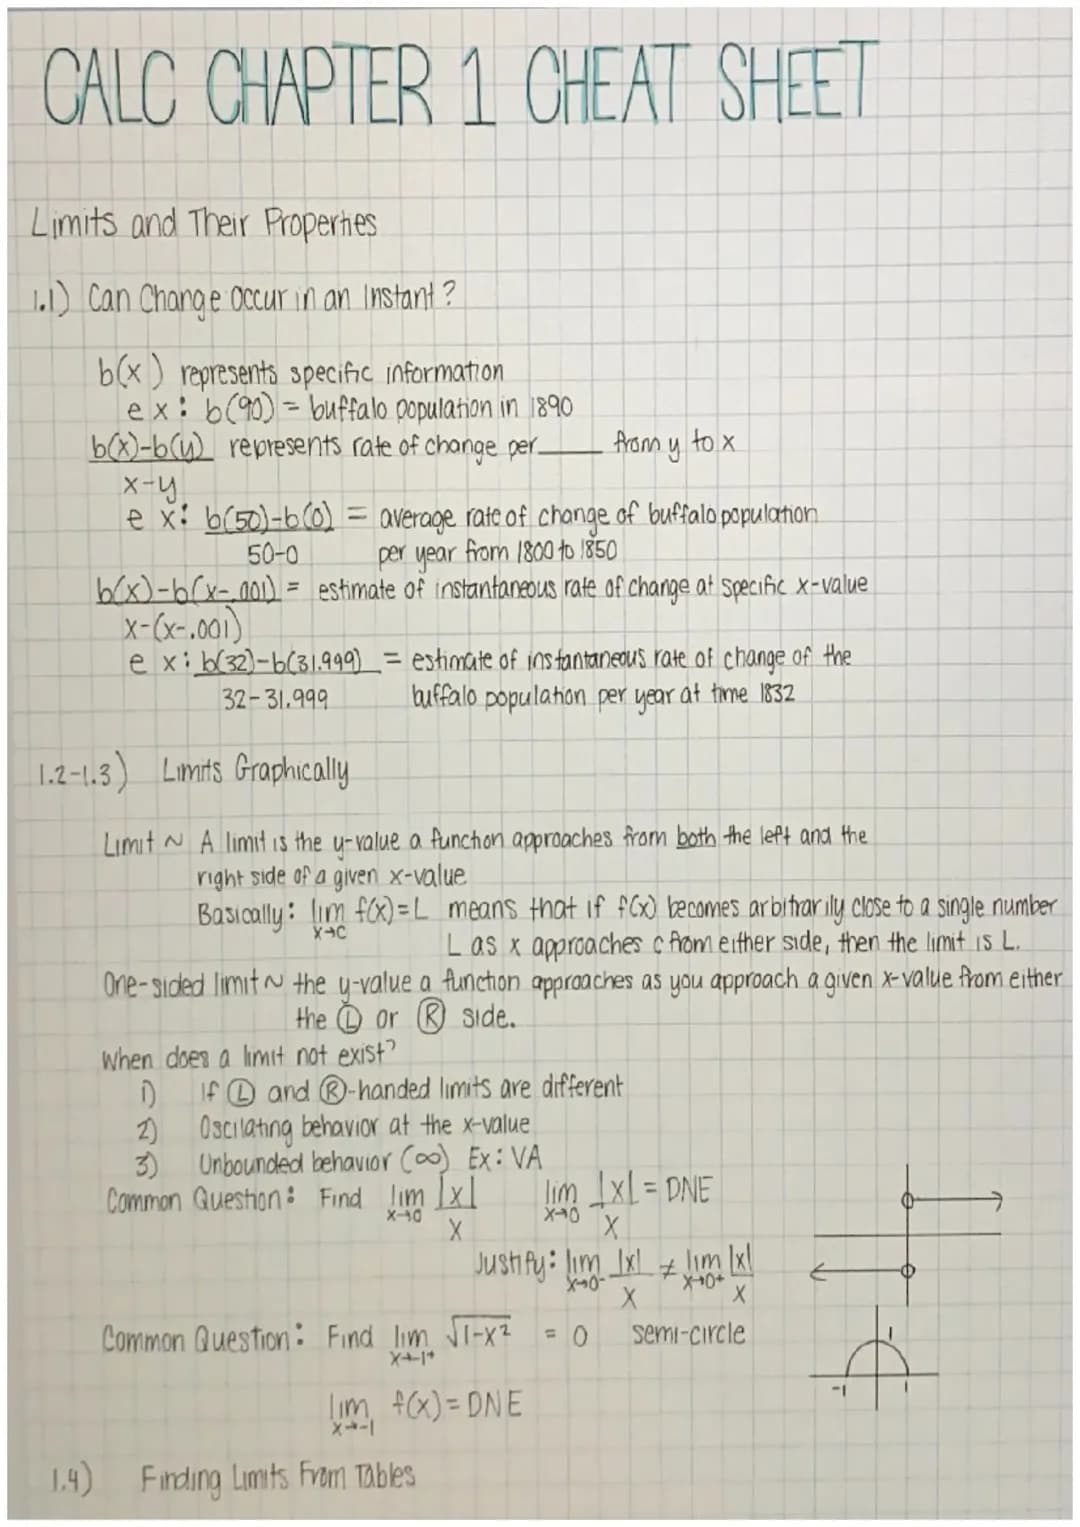 CALC CHAPTER 1 CHEAT SHEET
Limits and Their Properties
1.1) Can Change Occur in an Instant?
b(x) represents specific information
ex: b(90) = buffalo population in 1890
b(x)-b(y) represents rate of change per ____ from y to x
x-y
ex: b(50)-b(0) = average rate of change of buffalo population
50-0 per year from 1800 to 1850
b(x)-b(x-.001) = estimate of instantaneous rate of change at specific x-value
x-(x-.001)
ex: b(32)-b(31.999) = estimate of instantaneous rate of change of the
32-31.999 buffalo population per year at time 1832
1.2-1.3) Limits Graphically
Limit ~ A limit is the y-value a function approaches from both the left and the
right side of a given x-value
Basically: lim f(x)=L means that if f(x) becomes arbitrarily close to a single number
x→c L as x approaches c from either side, then the limit is L.
One-sided limit ~ the y-value a function approaches as you approach a given x-value from either
the Ⓛ or Ⓡ side.
When does a limit not exist?
1) If Ⓛ and Ⓡ-handed limits are different
2) Oscilating behavior at the x-value
3) Unbounded behavior (∞) Ex: VA
Common Question: Find lim |x| lim |x| = DNE
x→0 x x→0 x
Justify: lim |x| ≠ lim |x|
x→0- x x→0+ x
Common Question: Find lim √1-x² = 0 semi-circle
x→-1+
1
-1 1
lim f(x) = DNE
x→-1
1.4) Finding Limits From Tables